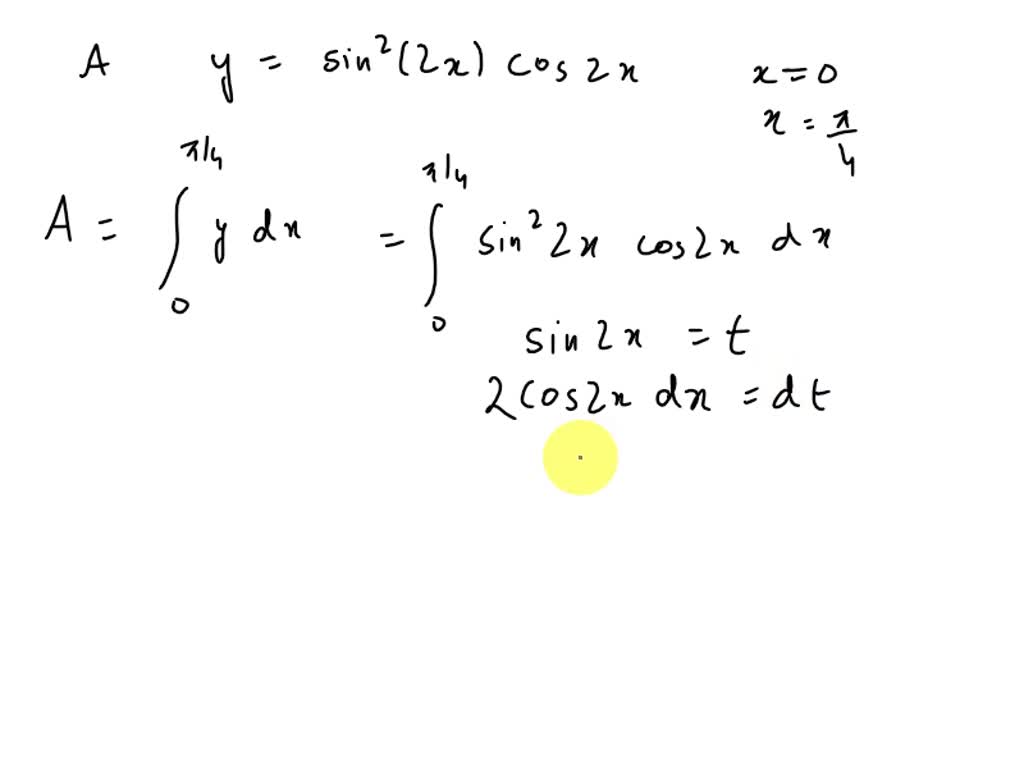 A y = sin²(2x) cos 2x x = 0
x = π/4
A = ∫₀^{π/4} y dx = ∫₀^{π/4} sin² 2x cos2x dx
sin 2x = t
2 cos2x dx = dt